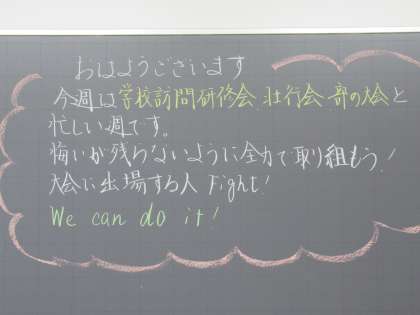 おはようございます
今週は学校訪問研修会、壮行会、部の大会と
忙しい週です。
悔いが残らないように全力で取り組もう!
大会に出場する人 Fight!
We can do it!